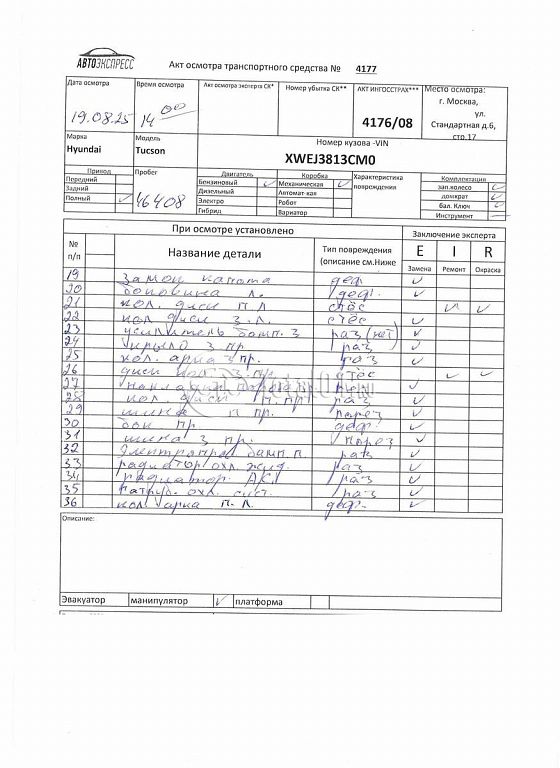 АВТОЭКСПРЕСС
Акт осмотра транспортного средства № 4177
Дата осмотра
19.08.25
Время осмотра
14 00
Акт осмотра эксперта СК*
Номер убытка СК**
АКТ ИНГОССТРАХ***
4176/08
Место осмотра:
г. Москва,
ул.
Стандартная д.6,
стр.17
Марка
Hyundai
Модель
Tucson
Номер кузова -VIN
XWEJ3813CM0
Привод
Передний
Задний
Полный
Пробег
16408
Двигатель
Бензиновый
Дизельный
Электро
Гибрид
Коробка
Механическая
Автомат-кая
Робот
Вариатор
Характеристика
повреждения
Комплектация
зап.колесо
домкрат
бал. Ключ
Инструмент
При осмотре установлено
Заключение эксперта
№ п/п
Название детали
Тип повреждения
(описание см.Ниже
E
I
R
Замена
Ремонт
Окраска
19 замок капота деф.
20 боковина л. деф.
21 кол. диск п л стёс
22 кол диск з.л. стёс
23 усилитель бамп. з раз (нет)
24 крыло з пр. раз
25 кол. арка з пр. раз
26 диск кол. з.пр. стёс
27
28 кол. диск п.пр раз
29 шина п пр. порез
30 бок пр. деф.
31 шина з пр. порез
32 бамп п раз
33 радиатор охл. жид. раз
34 радиатор АКП раз
35 патруб. охл. сист. раз
36 кол. арка п. л. деф.
Описание:
Эвакуатор
манипулятор
платформа